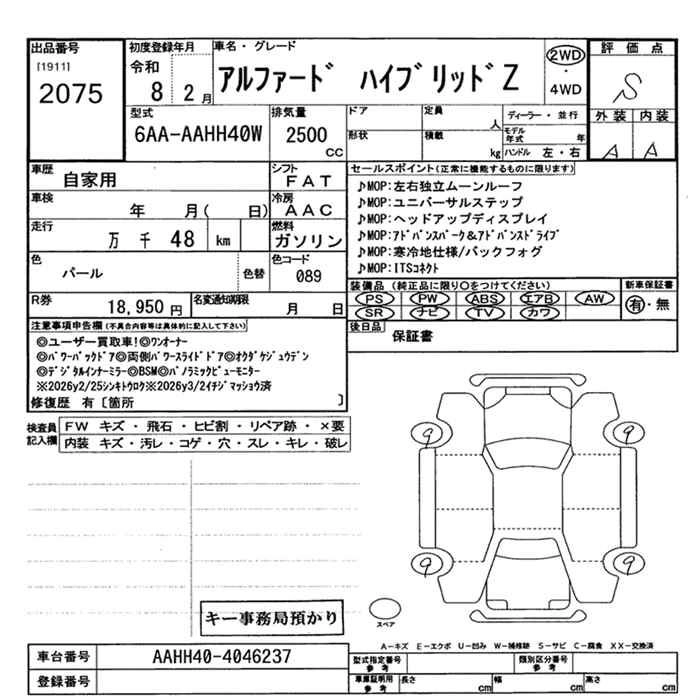 出品番号
[1911]
2075
初度登録年月
令和
8 2月
車名・グレード
アルファード ハイブリッドZ
2WD
・
4WD
評価点
S
外装 内装
A A
型式
6AA-AAHH40W
排気量
2500
CC
ドア
定員
人
形状
積載
kg
ディーラー・並行
モデル年式 年
ハンドル 左・右
車歴
自家用
シフト
FAT
車検
年 月( 日)
冷房
AAC
走行
万 千 48 km
燃料
ガソリン
色
パール
色替
色コード
089
R券
18,950円
名変通知期限
月 日
セールスポイント(正常に機能するものに限ります)
♪MOP:左右独立ムーンルーフ
♪MOP:ユニバーサルステップ
♪MOP:ヘッドアップディスプレイ
♪MOP:アドバンスパーク&アドバンスドライブ
♪MOP:寒冷地仕様/バックフォグ
♪MOP:ITSコネクト
装備品 (純正品に限り○をつけてください)
新車保証書
PS PW ABS エアB AW
SR ナビ TV カワ
有・無
後日品
保証書
注意事項申告欄(不具合内容等は具体的に記入して下さい)
◎ユーザー買取車!◎ワンオーナー
◎パワーバックドア◎両側パワースライドドア◎オクダケジュウデン
◎デジタルインナーミラー◎BSM◎パノラミックビューモニター
※2026y2/25シンキトウロク※2026y3/2イチジマッショウ済
修復歴 有〔箇所 〕
検査員記入欄
FW キズ・飛石・ヒビ割・リペア跡・×要
内装 キズ・汚レ・コゲ・穴・スレ・キレ・破レ
9 9
9 9
スペア
キー事務局預かり
A-キズ E-エクボ U-凹み W-補修跡 S-サビ C-腐食 XX-交換済
車台番号
AAHH40-4046237
登録番号
型式指定番号
参考
類別区分番号
参考
車庫証明用
参考
長さ cm
幅 cm
高さ cm